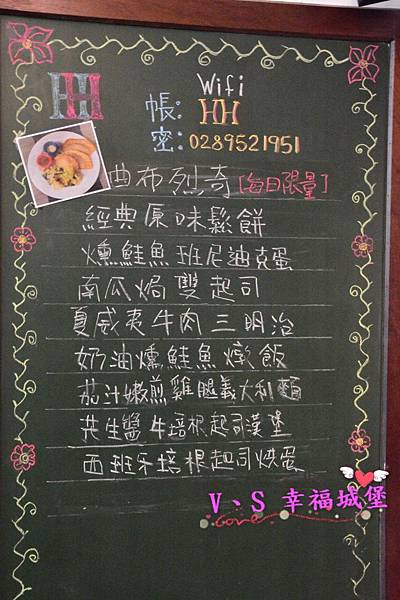 HH
Wifi
帳: HH
密: 0289521951
曲布烈奇 [每日限量]
經典原味鬆餅
燻鮭魚班尼迪克蛋
南瓜焗雙起司
夏威夷牛肉三明治
奶油燻鮭魚燉飯
茄汁嫩煎雞腿義大利麵
共生醬牛培根起司漢堡
西班牙培根起司烘蛋
V、S 幸福城堡
Love